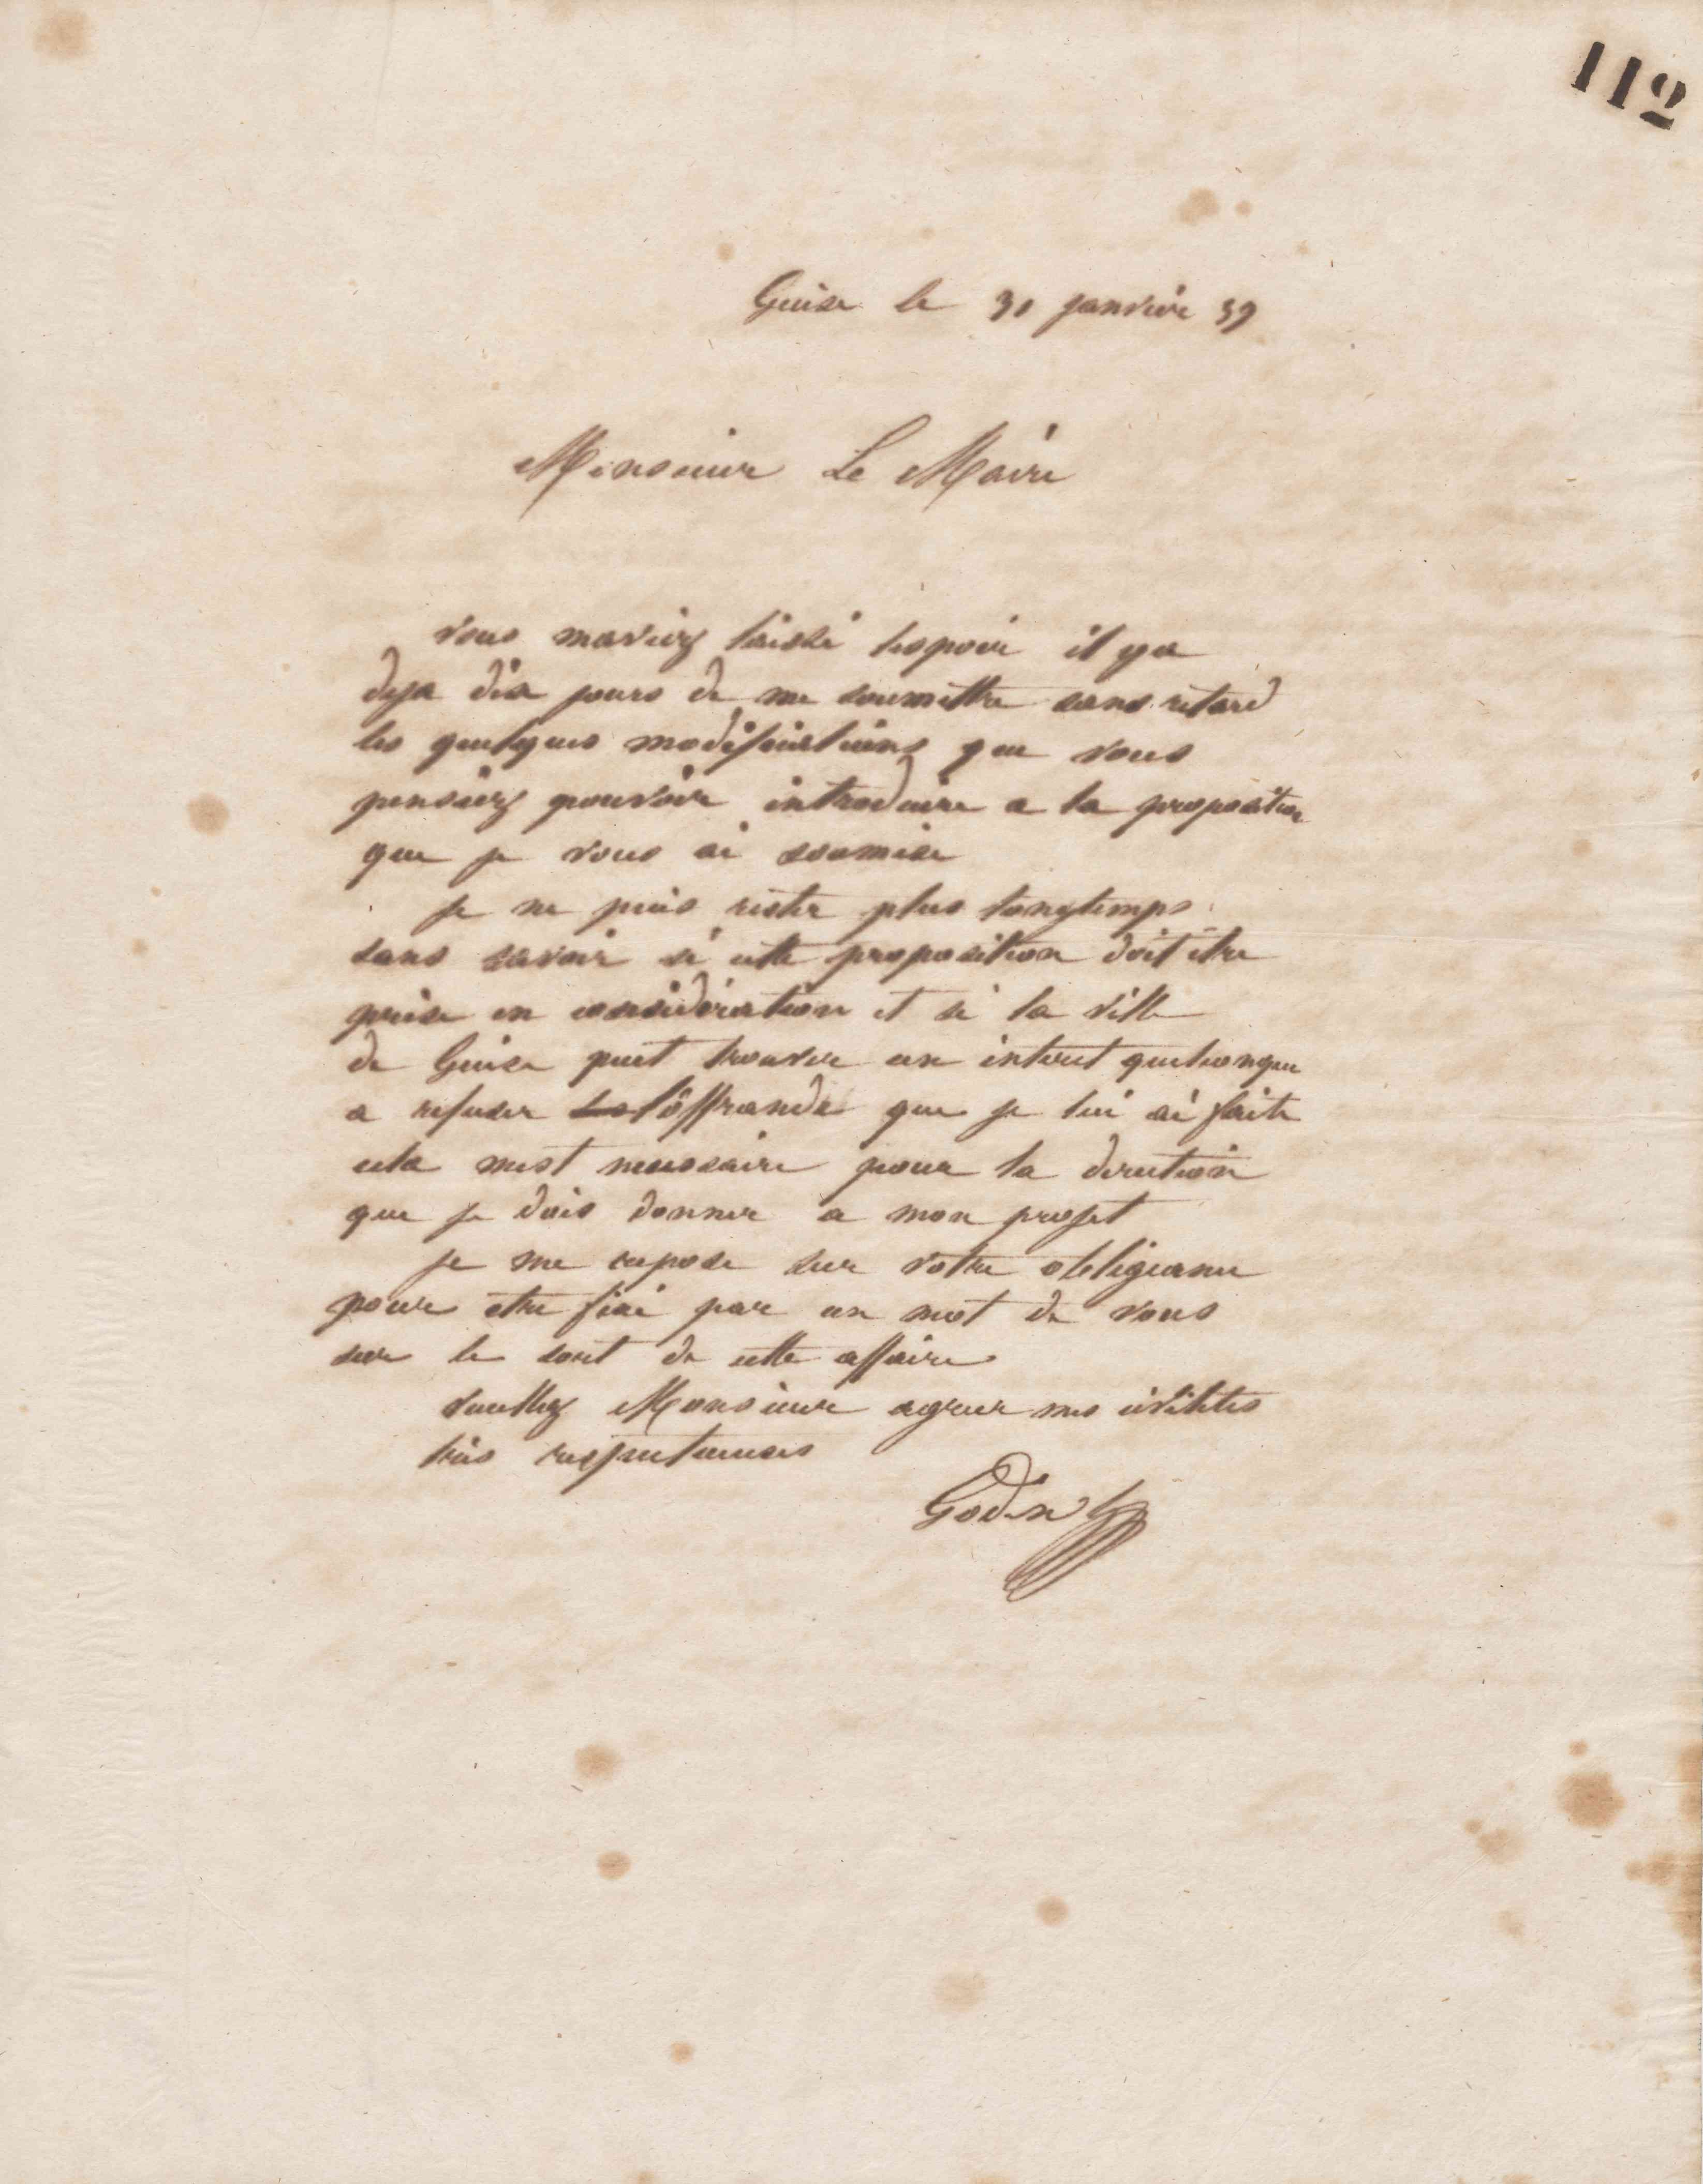 112
Guise le 31 janvier 59
Monsieur Le Maire
vous maviez laissé lespoir il ya
deja dix jours de me soumettre sans retard
les quelques modifications que vous
pensiez pouvoir introduire a la proposition
que je vous ai soumise
je ne puis rester plus longtemps
sans savoir si cette proposition doit etre
prise en consideration et si la ville
de Guise peut trouver un interet quelconque
a refuser l'offrande que je lui ai faite
cela mest necessaire pour la direction
que je dois donner a mon projet
je me repose sur votre obligeance
pour etre fixé par un mot de vous
sur le sort de cette affaire
veuillez Monsieur agreer mes civilites
très respectueuses
Godin